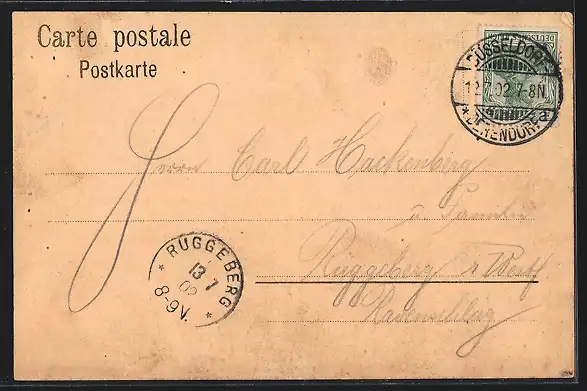 Carte postale
Postkarte
DÜSSELDORF
12.7.02.7-8N.
* DERENDORF a
Herrn Carl Hackenberg
u Familie
Rüggeberg i/Westf
RUGGEBERG
13 7
02
8-9V.